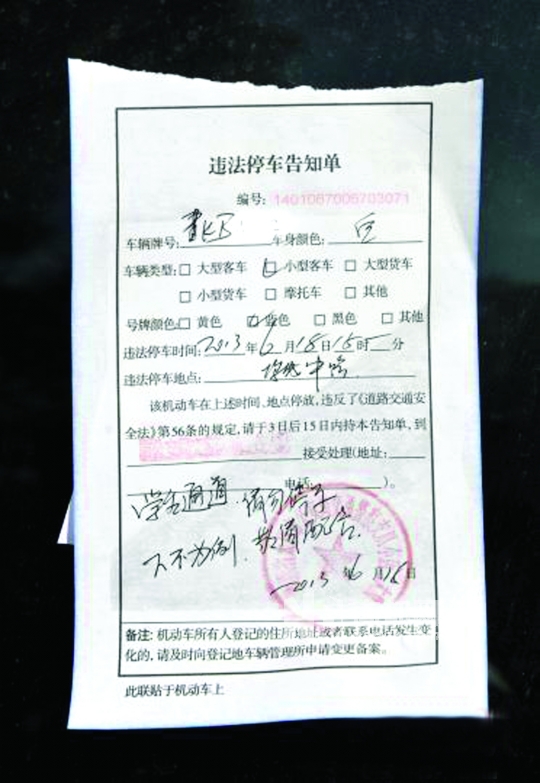 违法停车告知单
编号: 1401067005703071
车辆牌号: 车身颜色: 白
车辆类型: □ 大型客车 ☑ 小型客车 □ 大型货车
□ 小型货车 □ 摩托车 □ 其他
号牌颜色: □ 黄色 ☑ 蓝色 □ 黑色 □ 其他
违法停车时间: 2013 年 6 月 18 日 15 时 分
违法停车地点: 中路
该机动车在上述时间、地点停放,违反了《道路交通安
全法》第56条的规定,请于3日后15日内持本告知单,到
接受处理(地址:
电话: )。
通道,请勿停车
下不为例,敬请配合.
2013 年 6 月 18 日
备注: 机动车所有人登记的住所地址或者联系电话发生变
化的,请及时向登记地车辆管理所申请变更备案。
此联贴于机动车上